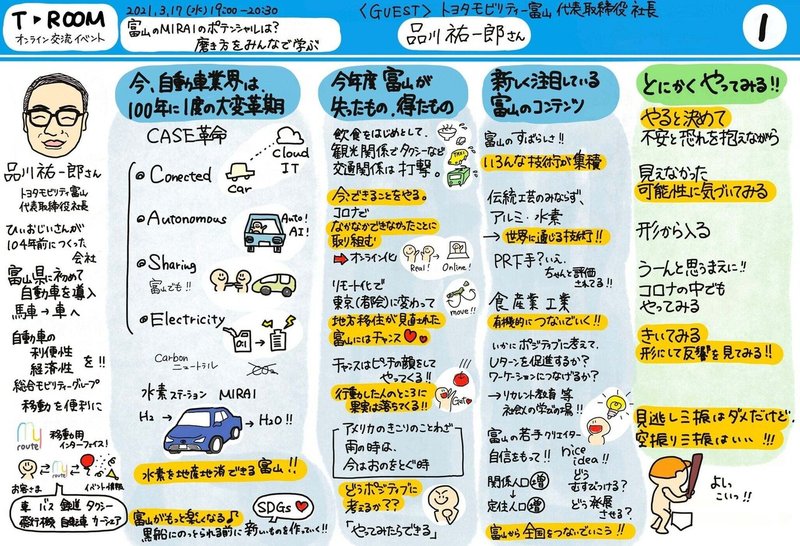 T▶ROOM
オンライン交流イベント
2021.3.17(水)19:00-20:30
富山のMIRAIのポテンシャルは?
磨き方をみんなで学ぶ
〈GUEST〉トヨタモビリティー富山 代表取締役 社長
品川祐一郎さん
1
品川祐一郎さん
トヨタモビリティ富山
代表取締役社長
ひぃおじいさんが
104年前につくった
会社
富山県に初めて
自動車を導入
馬車→車へ
自動車の
利便性
経済性
を!!
総合モビリティーグループ
移動を便利に
my route
移動用
インターフェイス!
お客さま
イベント情報
車 バス 鉄道 タクシー
飛行機 自転車 カーシェア
今、自動車業界は、
100年に1度の大変革期
CASE革命
Cloud
IT
Conected
car
Autonomous
Auto!
AI!
Sharing
富山でも!!
Electricity
Carbon
ニュートラル
水素ステーション MIRAI
H2 → → H2O!!
水素を地産地消できる富山!!
SDGs
富山がもっと楽しくなる♪
黒船にのっとられる前に新しいものを作っていく!!
今年度 富山が
失ったもの、得たもの
飲食をはじめとして、
観光関係でタクシーなど
交通関係は打撃。
今、できることをやる。
コロナで
なかなかできなかったことに
取り組む
➡オンライン化
Real!
Online!
リモート化で
東京(都会)に変わって
地方移住が見直された
富山にはチャンス
move!!
チャンスはピンチの顔をして
やってくる!!
行動した人のところに
果実は落ちてくる!!
Get
アメリカのきこりのことわざ
雨の時は、
今はおのをとぐ時
どうポジティブに
考えるか??
「やってみたらできる」
新しく注目している
富山のコンテンツ
富山のすばらしさ!!
いろんな技術が集積
伝統工芸のみならず、
アルミ・水素
→世界に通じる技術!!
PR下手?いえ、
ちゃんと評価
されてる!!
食 産業 工業
有機的につないでいく!!
いかにポジティブに考えて、
Uターンを促進するか?
ワーケーションにつなげるか?
→リカレント教育 等
社会人の学びの場!!
富山の若手クリエイター
自信をもって!!
nice
idea!!
関係人口増
どう
むすびつける?
定住人口増
どう発展
させる?
富山から全国をつないでいこう!!
とにかくやってみる!!
やると決めて
不安と恐れを抱えながら
見えなかった
可能性に気づいてみる
形から入る
うーんと思うまえに!!
コロナの中でも
やってみる
きいてみる
形にして反響を見てみる!!
見逃し三振はダメだけど、
空振り三振はいい!!!
よしっ
こいっ!!